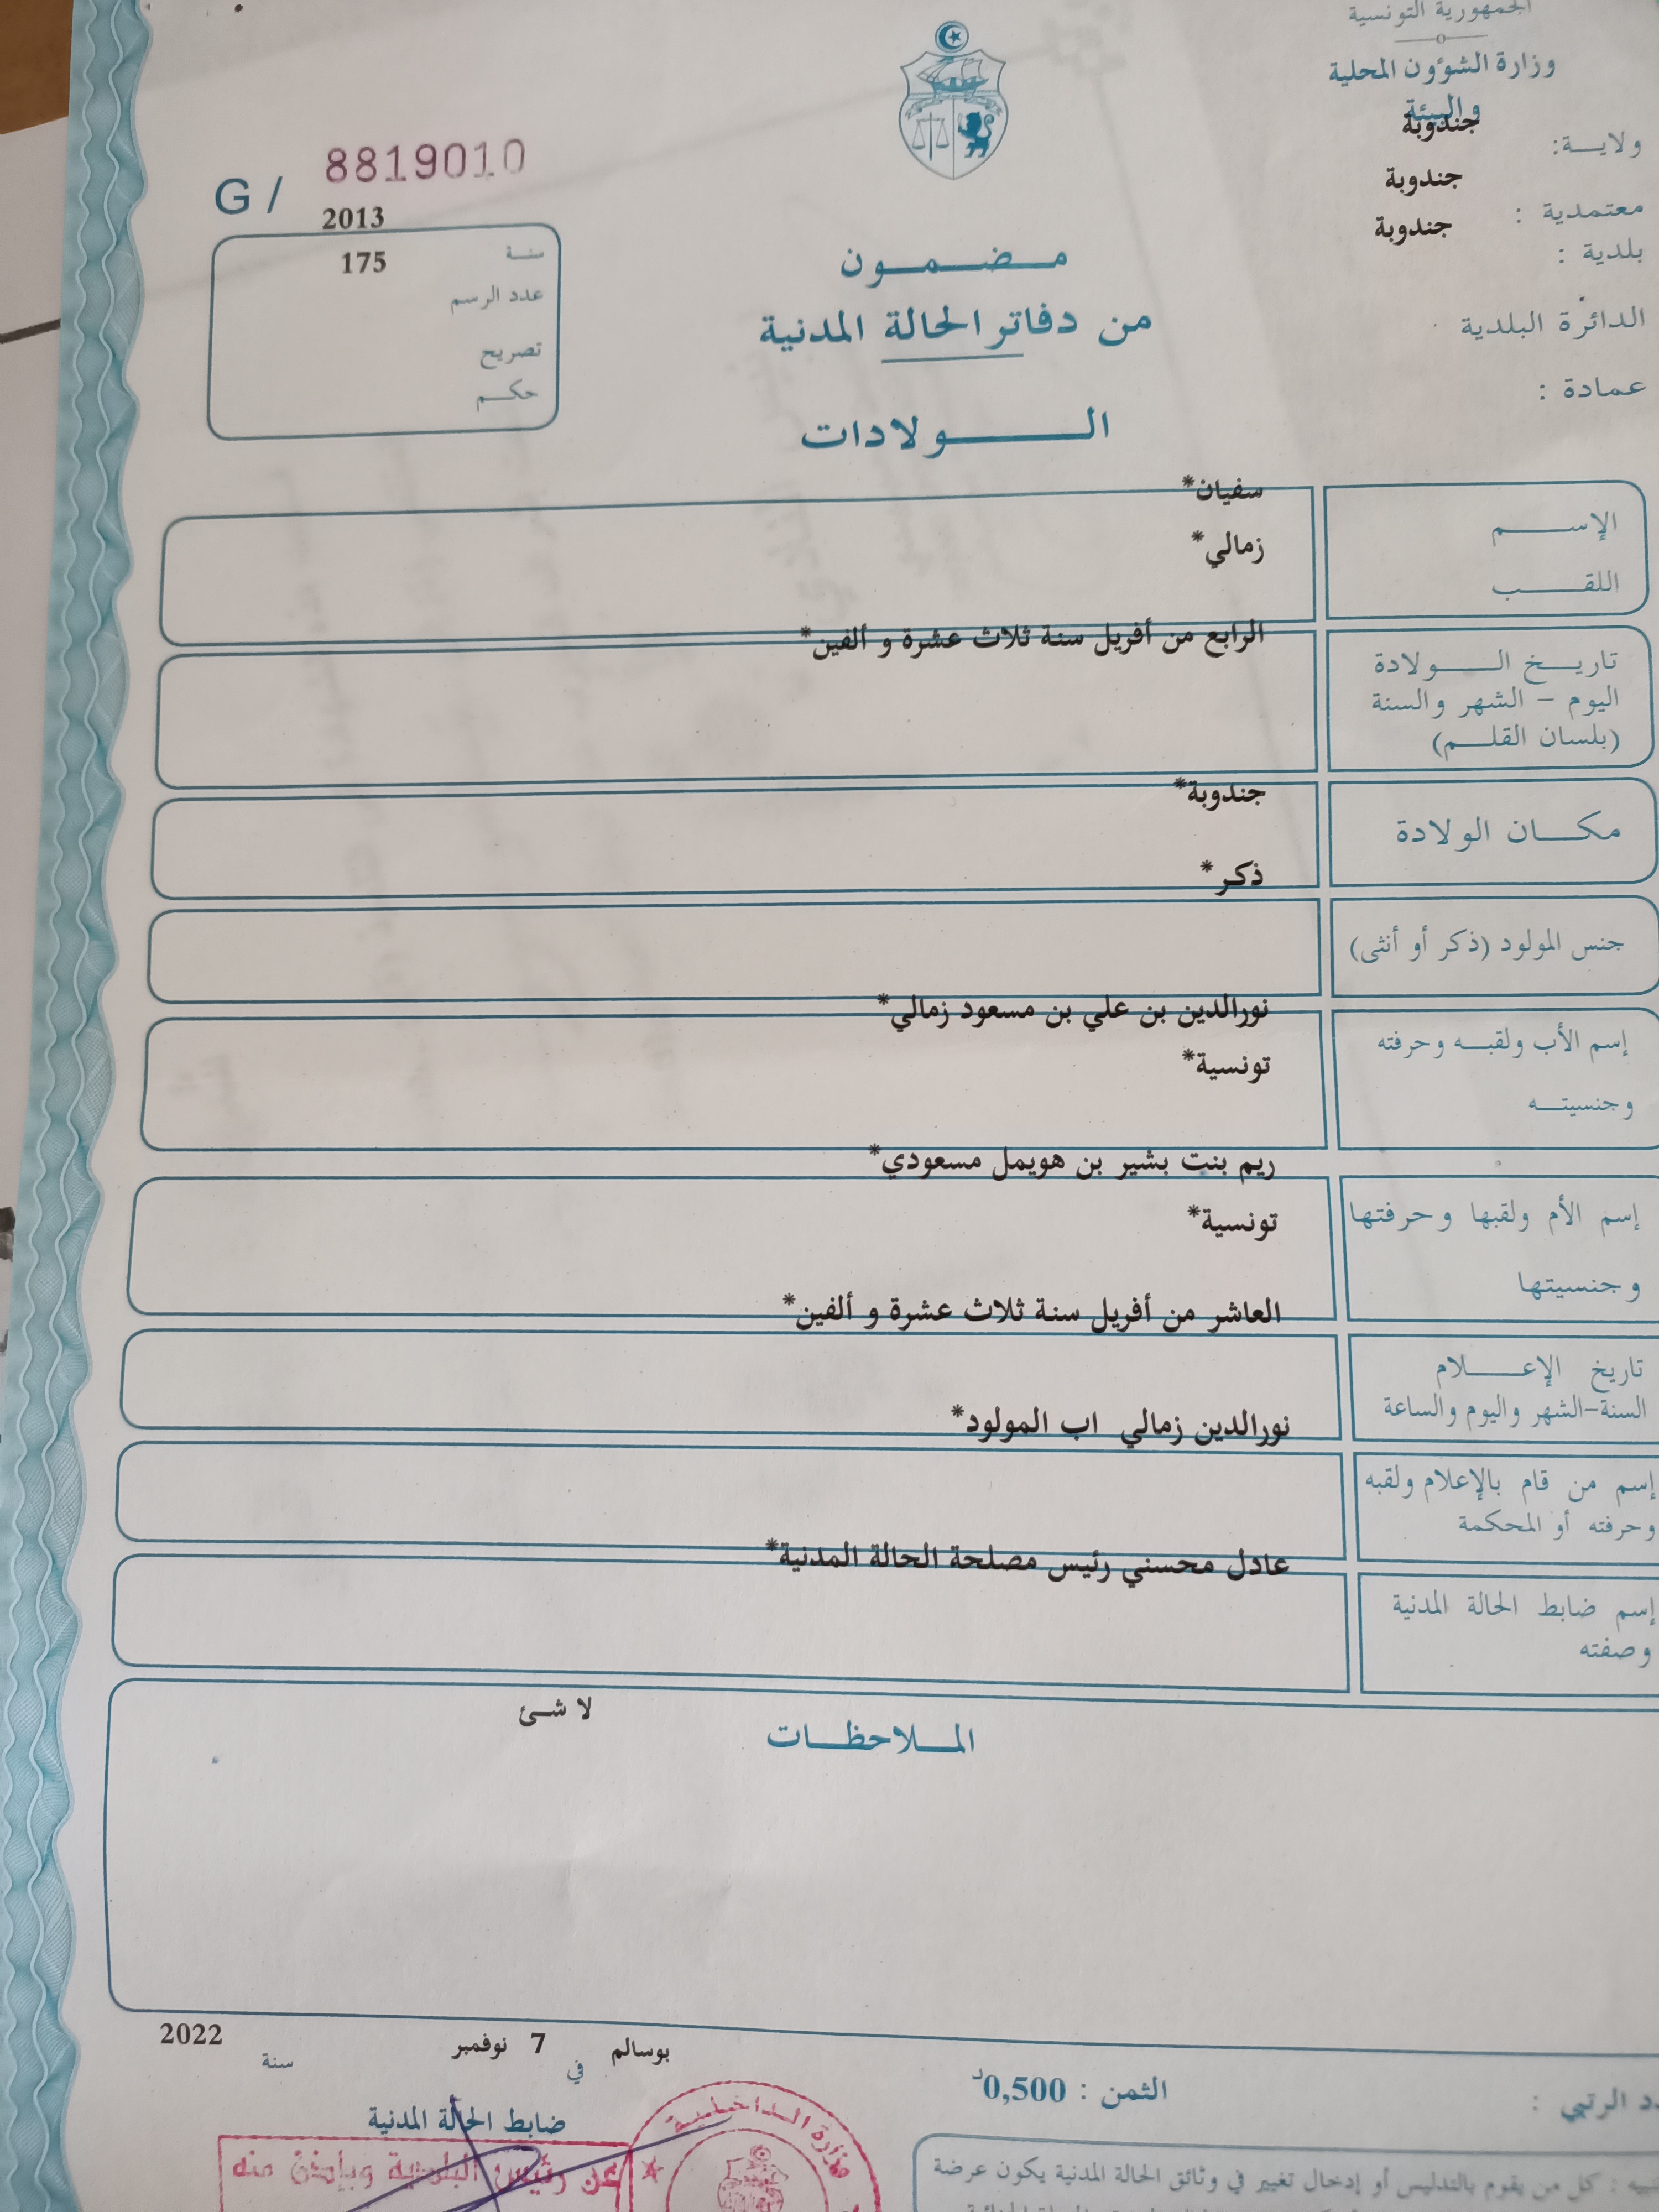 الجمهورية التونسية
وزارة الشؤون المحلية
والبيئة
ولاية: جندوبة
معتمدية : جندوبة
بلدية : جندوبة
الدائرة البلدية
عمادة :
G / 8819010
سنة 2013
عدد الرسم 175
تصريح
حكم
مضمون
من دفاتر الحالة المدنية
الولادات
الإسم سفيان*
اللقب زمالي*
تاريخ الولادة الرابع من أفريل سنة ثلاث عشرة و ألفين*
اليوم - الشهر والسنة
(بلسان القلم)
مكان الولادة جندوبة*
جنس المولود (ذكر أو أنثى) ذكر*
إسم الأب ولقبه وحرفته نورالدين بن علي بن مسعود زمالي*
وجنسيته تونسية*
إسم الأم ولقبها وحرفتها ريم بنت بشير بن هويمل مسعودي*
وجنسيتها تونسية*
تاريخ الإعلام العاشر من أفريل سنة ثلاث عشرة و ألفين*
السنة-الشهر واليوم والساعة
إسم من قام بالإعلام ولقبه نورالدين زمالي اب المولود*
وحرفته أو المحكمة
إسم ضابط الحالة المدنية عادل محسني رئيس مصلحة الحالة المدنية*
وصفته
الملاحظات
لا شئ
بوسالم في 7 نوفمبر سنة 2022
الرتبي :
الثمن : 0,500د
ضابط الحالة المدنية
عن رئيس البلدية وبإذن منه
وزارة الداخلية
: كل من يقوم بالتدليس أو إدخال تغيير في وثائق الحالة المدنية يكون عرضة